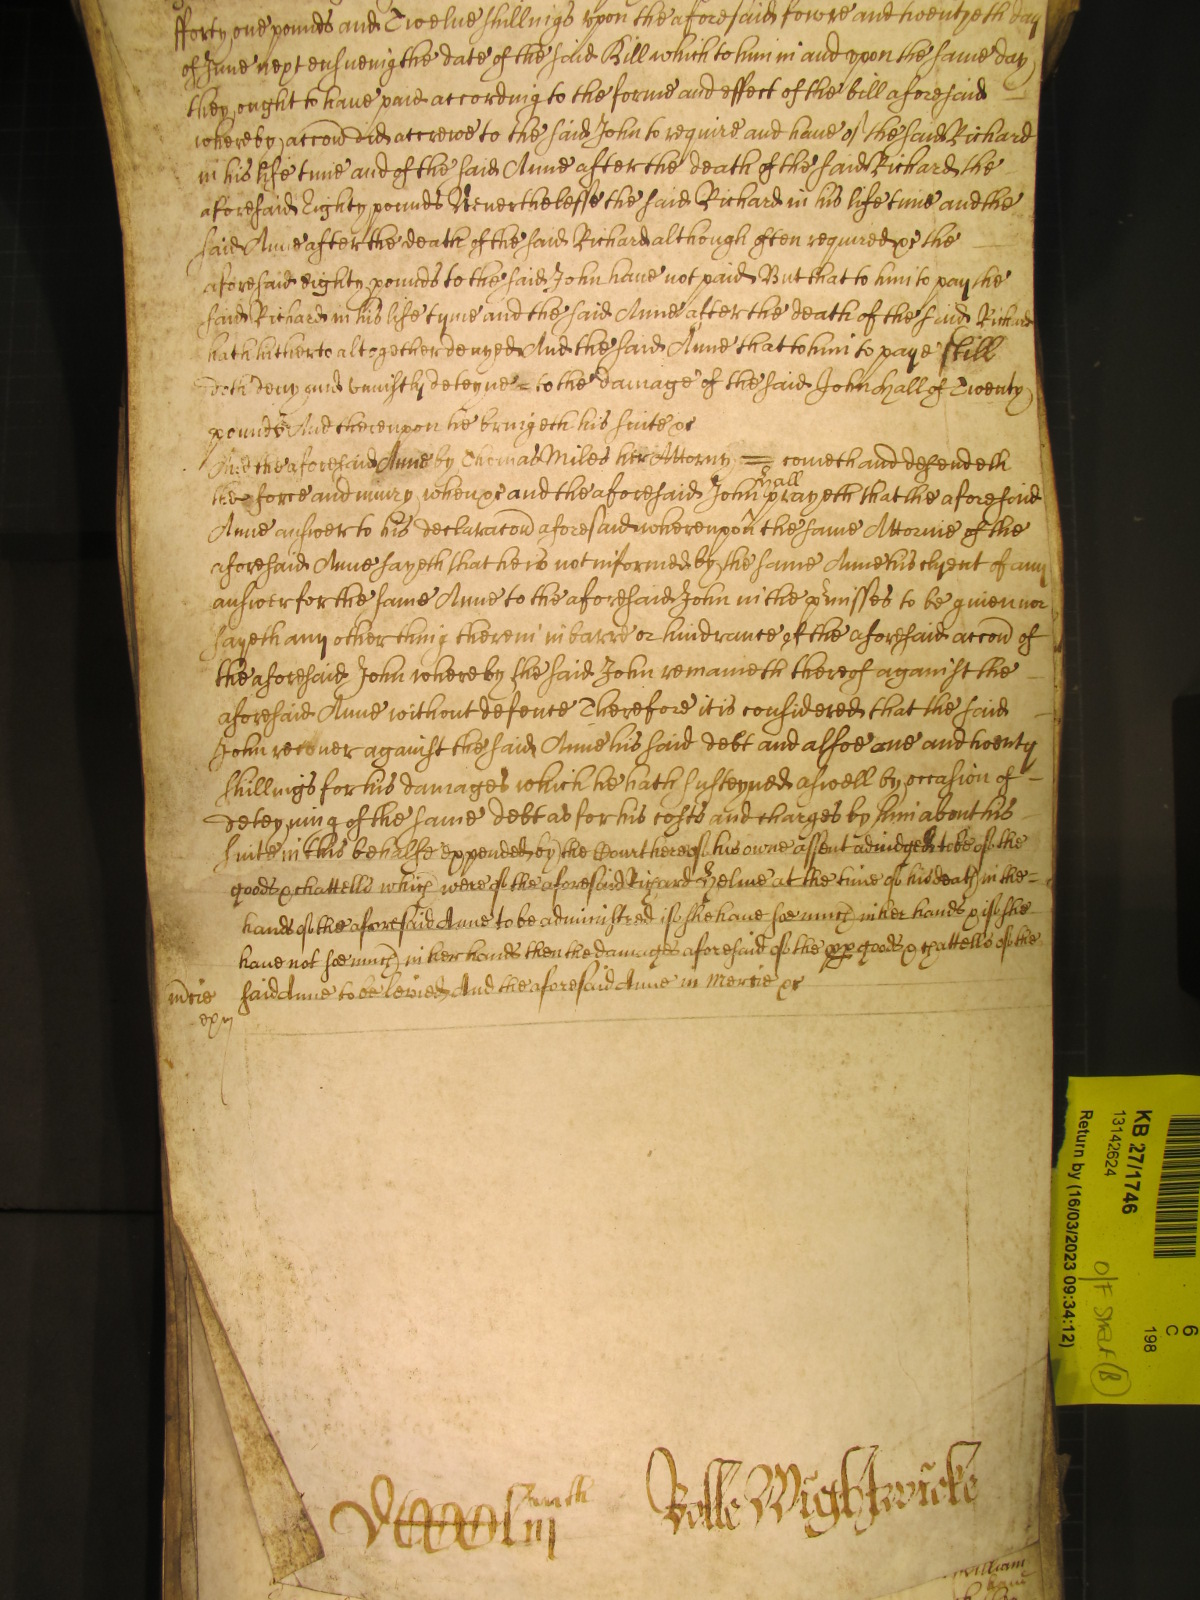 fforty one pounds and Twelue shillings vpon the aforesaid fowre and twentyeth day
of June next ensueing the date of the said Bill which to him in and vpon the same day
they ought to haue paid according to the forme and effect of the bill aforesaid
whereby accon did accrewe to the said John to require and haue of the said Richard
in his life time and of the said Anne after the death of the said Richard the
aforesaid Eighty pounds Neuerthelesse the said Richard in his life time and the
said Anne after the death of the said Richard although often required &c the
aforesaid eighty pounds to the said John haue not paid But that to him to pay the
said Richard in his life tyme and the said Anne after the death of the said Richard
hath hitherto altogether denyed And the said Anne that to him to paye still
doth deny and vniustly deteyne = to the damage of the said John Hall of Twenty
pounds And thereupon he bringeth his suite &c
And the aforesaid Anne by Thomas Miles her Attorny = cometh and defendeth
the force and iniury when &c and the aforesaid John Hall prayeth that the aforesaid
Anne answer to his declaracon aforesaid whereupon the same Attornie of the
aforesaid Anne sayeth that he is not informed by the same Anne his clyent of any
answer for the same Anne to the aforesaid John in the pmisses to be giuen nor
sayeth any other thing therein in barre or hindrance of the aforesaid accon of
the aforesaid John whereby the said John remaineth thereof against the
aforesaid Anne without defence Therefore it is considered that the said
John recouer against the said Anne his said debt and alsoe one and twenty
shillings for his damages which he hath susteyned aswell by occasion of
deteyning of the same debt as for his costs and charges by him about his
suite in this behalfe expended by the Court hereof his owne assent adiudged to be of the
goods & chattells which were of the aforesaid Richard Helme at the time of his death in the
hands of the aforesaid Anne to be administred if she haue soe much in her hands & if she
haue not soe much in her hands then the damages aforesaid of the pp goods & chattells of the
said Anne to be levied And the aforesaid Anne in Mercie &c
mcie
Rolle Wightwicke
William
KB 27/1746
13142624
Return by (16/03/2023 09:34:12)
O/F Shelf (B)
6
C
198